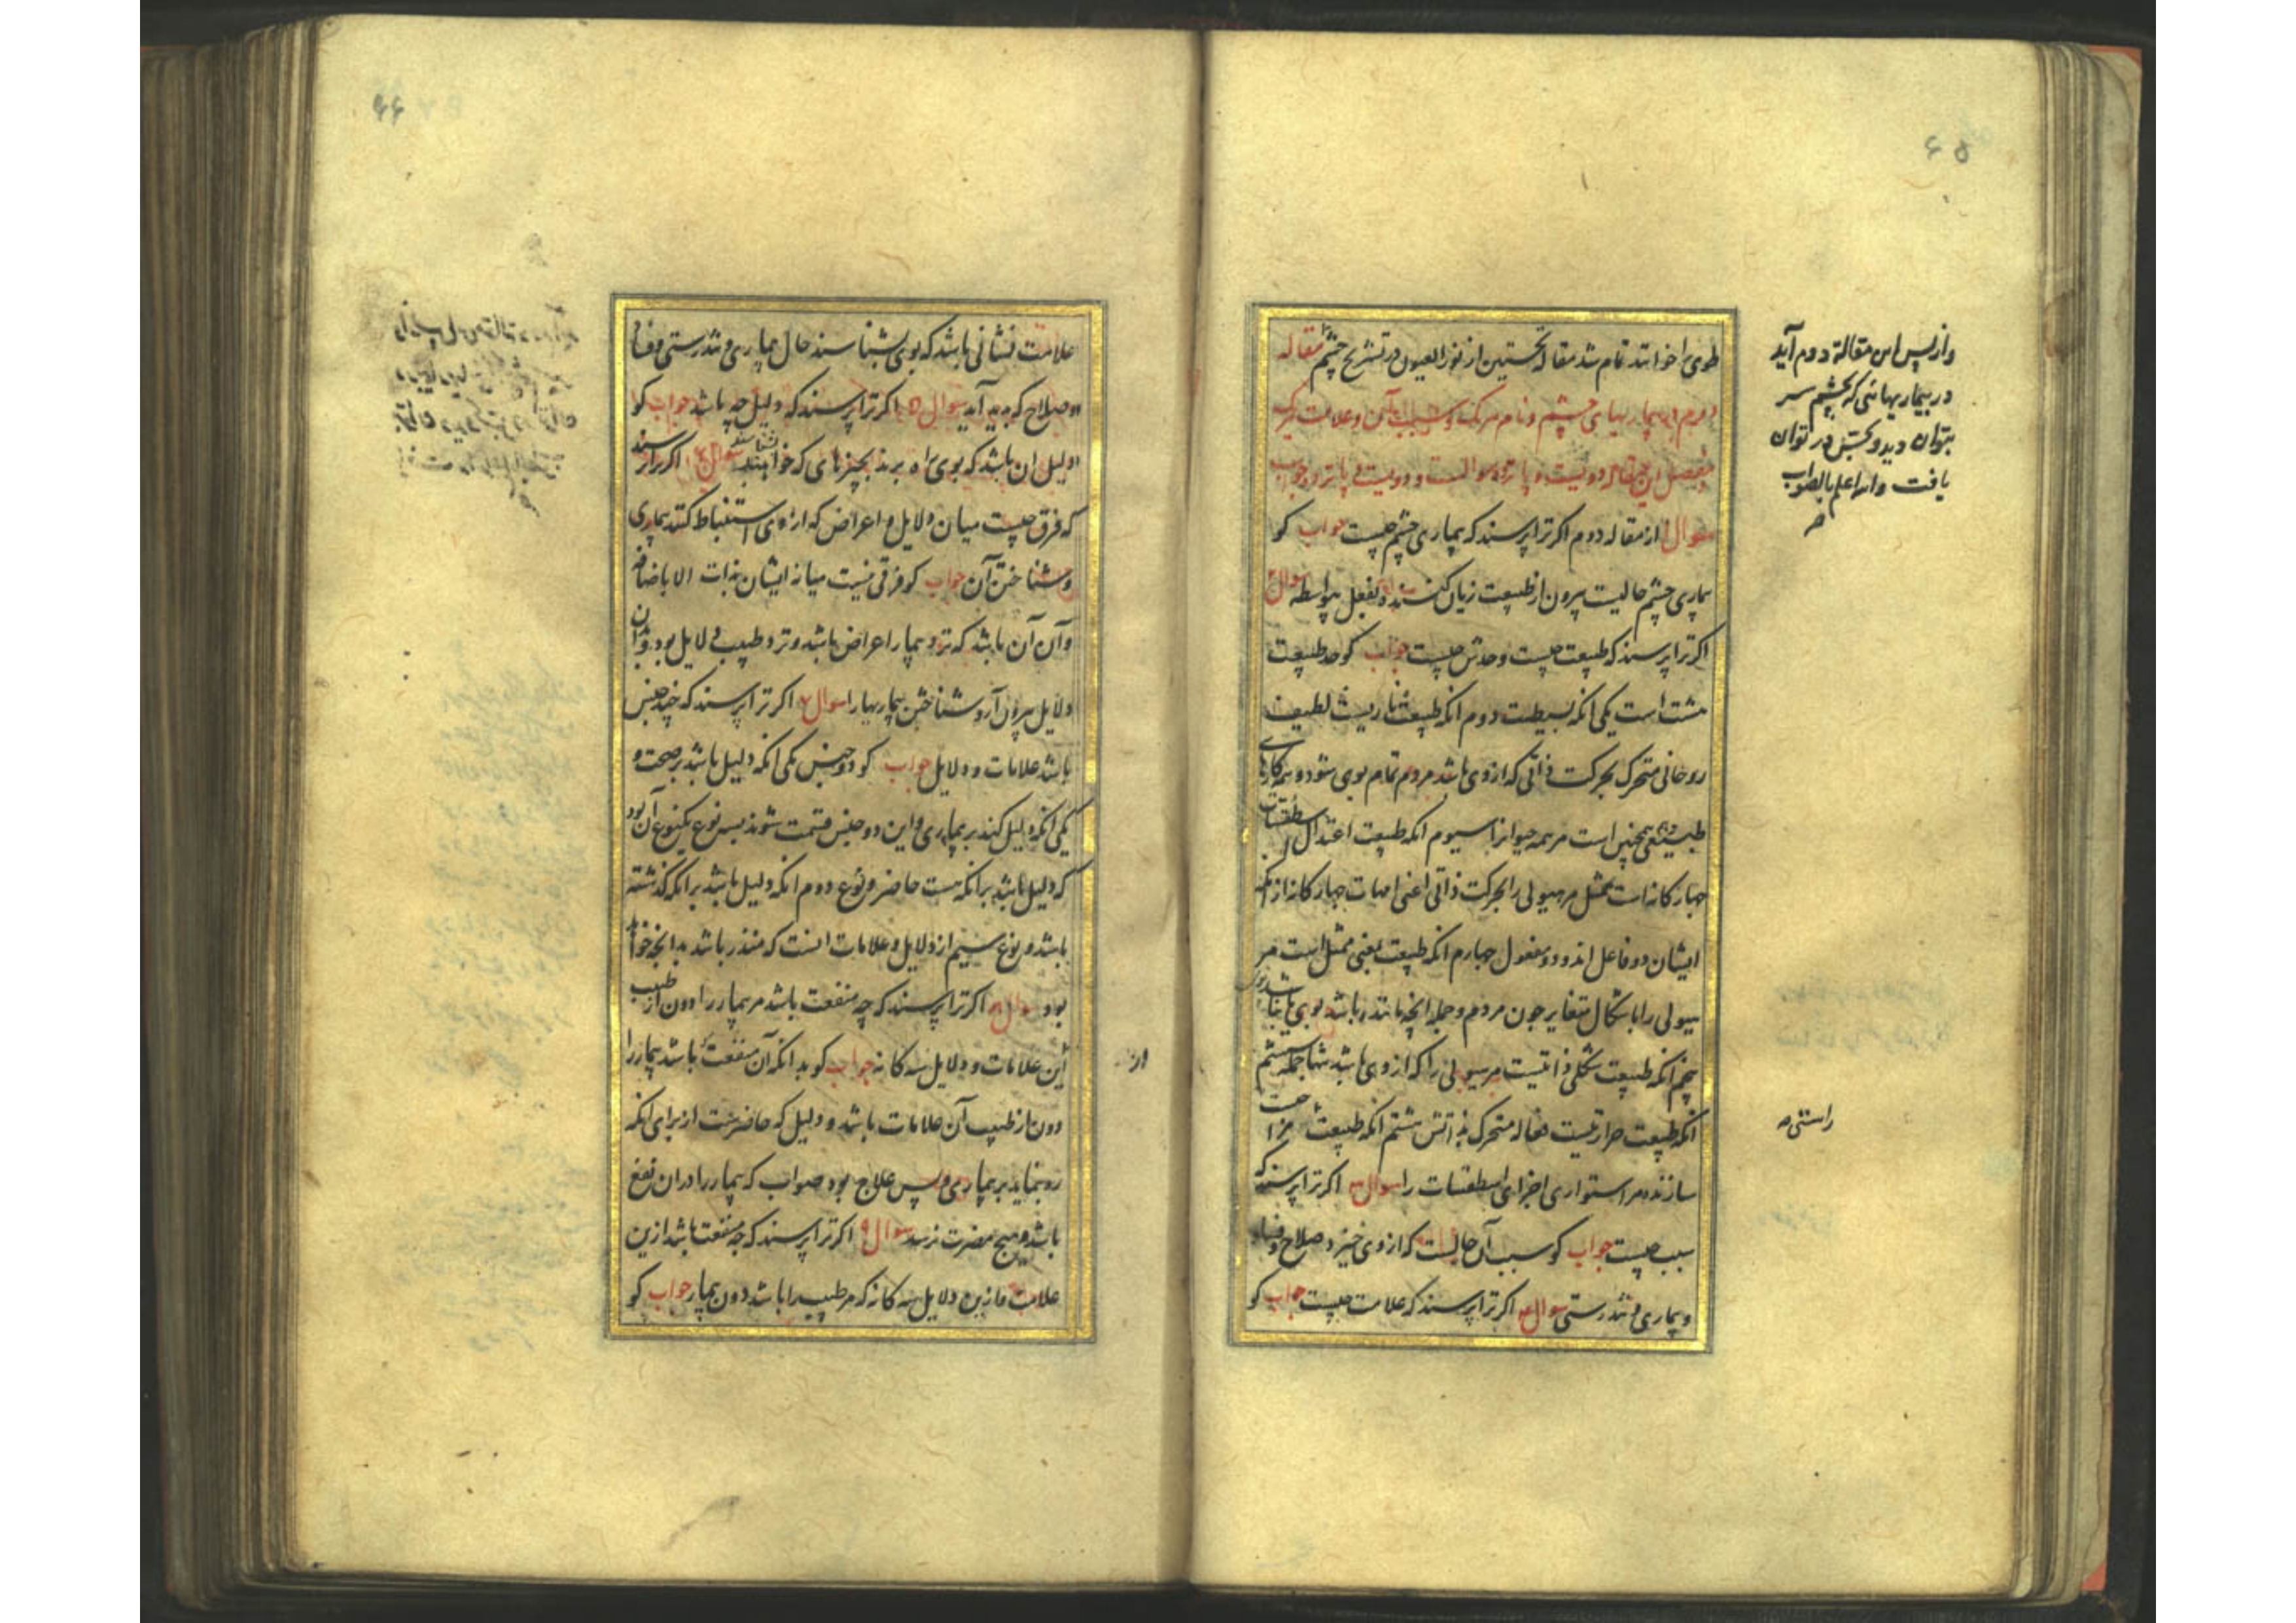 ۶۵
طوی را خوانند تمام شد مقاله نخستین از نور العیون در تشریح چشم مقاله
دوم در بیماریهای چشم و نام هر یک و سبب آن و علامت هر یک
این مقاله دویست و پانزده سوالست و دویست و پانزده جواب
سوال ۱ از مقاله دوم اکر ترا پرسند که بیماری چشم چیست جواب کو
بیماری چشم حالیست بیرون از طبیعت زیان کننده بفعل بیواسطه سوال ۲
اکر ترا پرسند که طبیعت چیست و حدش چیست جواب کو حد طبیعت
هشت است یکی انکه بسیطست دوم انکه طبیعت ناریست لطیف
روحانی متحرک بحرکت ذاتی که از وی باشد مردم تمام بوی شود و همه کارهای
طبیعی همچنین است مر همه حیوانرا سیوم انکه طبیعت اعتدال اسطقسات
چهار کانه است ممثل مر هیولی را بحرکت ذاتی اعنی امهات چهار کانه از انکه
ایشان دو فاعل اند و دو مفعول چهارم انکه طبیعت یعنی ممثل است مر
هیولی را باشکال متغایر چون مردم و جمله انچه مانند باشد بوی
پنجم انکه طبیعت شکلی ذاتیست مر هیولی را که از وی باشد ششم
انکه طبیعت حرارتیست فعاله متحرک بذاتش هشتم انکه طبیعت
سازنده مر استواری اجزای اسطقسات را سوال ۳ اکر ترا پرسند که
سبب چیست جواب کو سبب آن حالست که از وی خیزد صلاح و فساد
و بیماری و تندرستی سوال ۴ اکر ترا پرسند که علامت چیست جواب کو
واز پس این مقالة دوم آید
در بیماریهائی که بچشم سر
بتوان دید و بحس در توان
یافت والله اعلم بالصواب
راستی
۶۶
علامت نشانی باشد که بوی بشناسند حال بیماری و تندرستی و فساد
و صلاح که پدید آید سوال ۵ اکر ترا پرسند که دلیل چه باشد جواب کو
دلیل ان باشد که بوی راه برند بچیزهای که خواهند سوال ۶ اکر ترا پرسند
که فرق چیست میان دلایل و اعراض که از وی استنباط کنند بیماری
و شناختن آن جواب کو فرقی نیست میانه ایشان بذات الا باضافه
وآن آن باشد که نزد بیمار اعراض باشد و نزد طبیب دلایل بود
دلایل بیرون آرد شناختن بیماریها را سوال ۷ اکر ترا پرسند که چند جنس
باشد علامات و دلایل جواب کو دو جنس یکی انکه دلیل باشد بر صحت و
یکی انکه دلیل کند بر بیماری و این دو جنس قسمت شوند بسه نوع یکنوع آن بود
که دلیل باشد بر انکه هست حاضر و نوع دوم انکه دلیل باشد بر انکه کذشته
باشد و نوع سیم از دلایل و علامات انست که منذر باشد بدانچه خواهد
بود سوال ۸ اکر ترا پرسند که چه منفعت باشد مر بیمار را دون از طبیب
این علامات و دلایل سه کانه جواب کو بدانکه آن منفعت باشد بیمار را
دون از طبیب آن علامات باشد و دلیل که حاضرست از برای انکه
ره نماید بر بیماری و پس علاج بود صواب که بیمار را در ان نفع
باشد و هیچ مضرت نرسد سوال ۹ اکر ترا پرسند که چه منفعت باشد ازین
علامت و ازین دلایل سه کانه که مر طبیب را باشد دون بیمار جواب کو
از